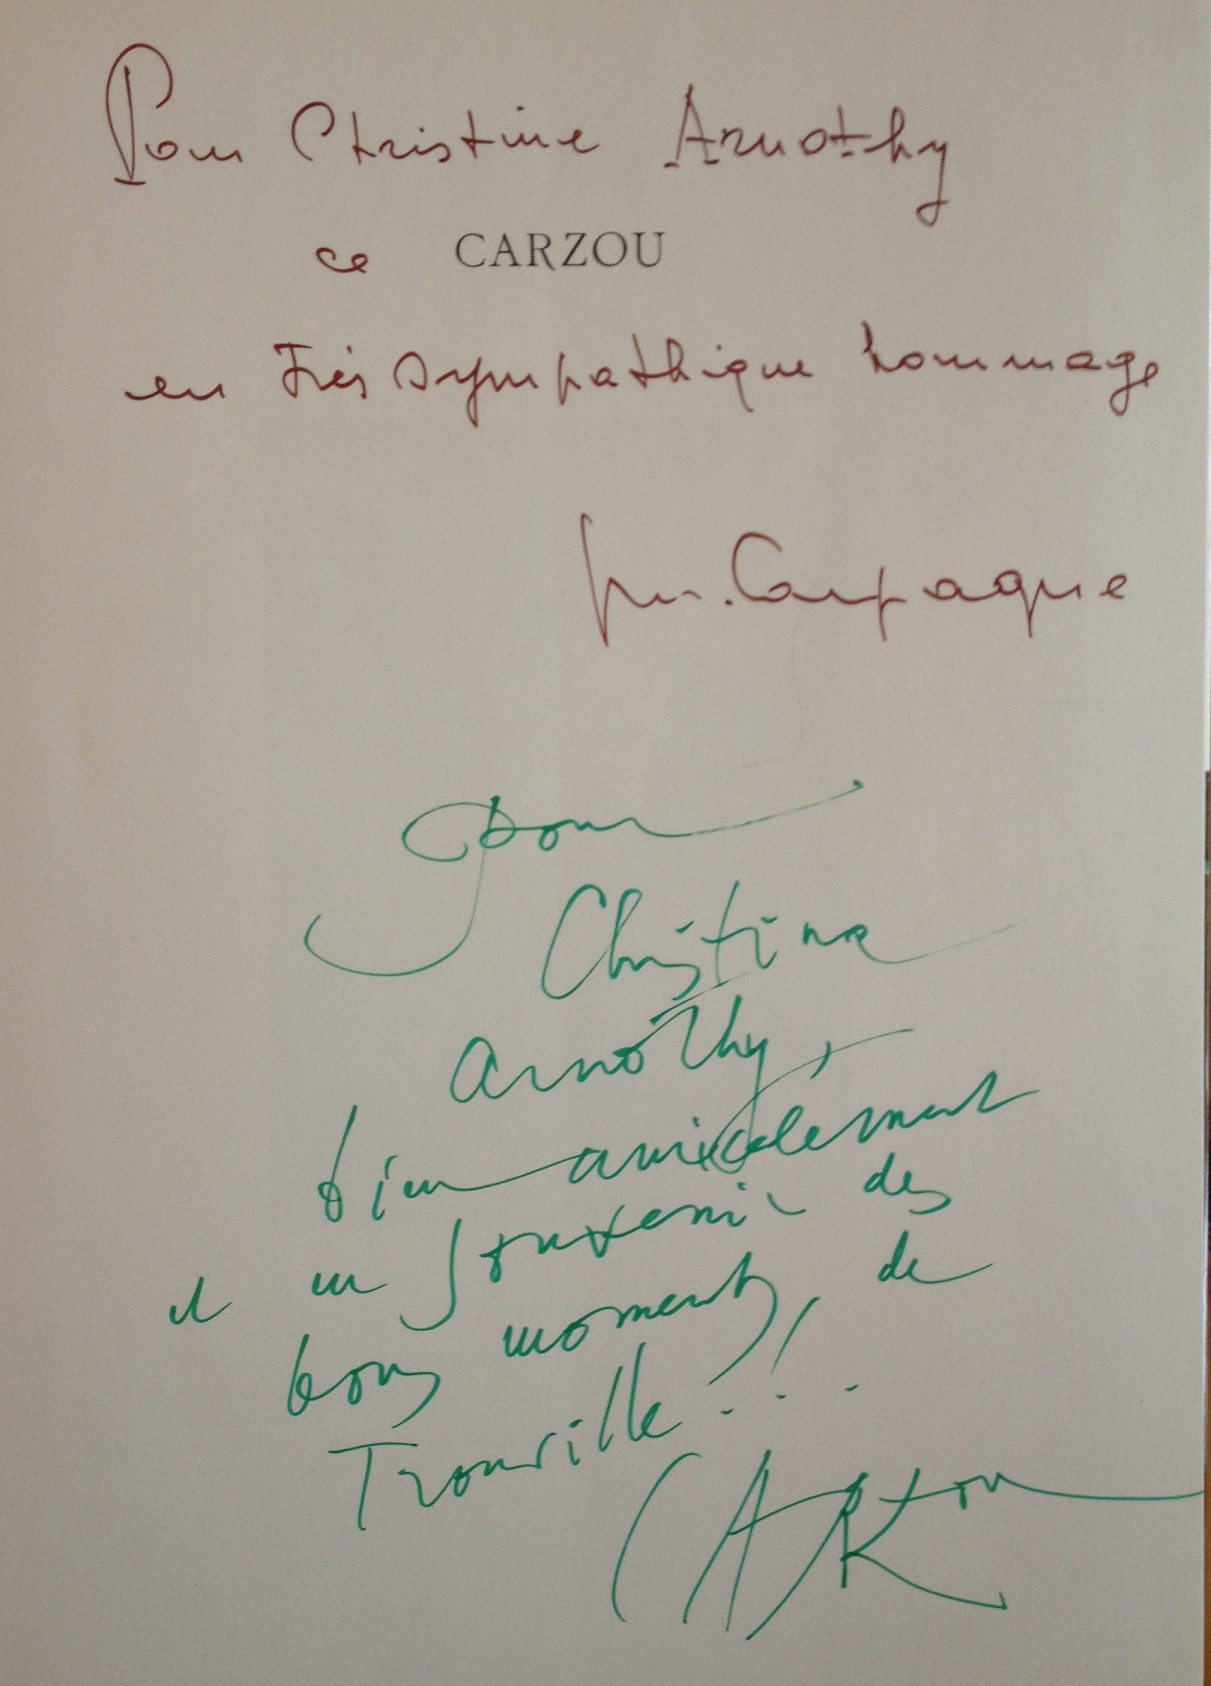 Pour Christine Arnothy
ce CARZOU
en très sympathique hommage
Campagne
Pour
Christine
Arnothy,
bien amicalement
et en souvenir des
bons moments, de
Trouville!...
CARZou